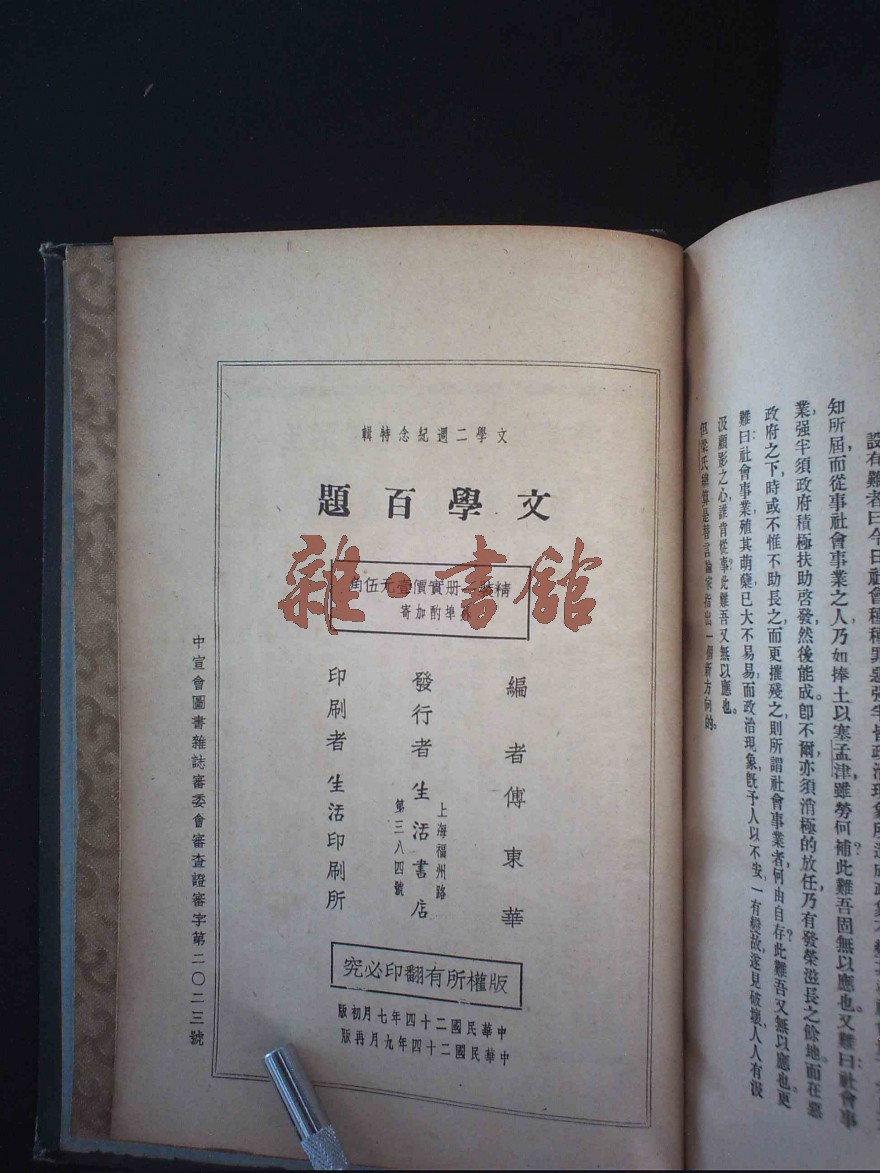 文學二週紀念特輯
文學百題
精裝一册實價壹元伍角
酌加寄
編者傅東華
發行者生活書店
上海福州路
第三八四號
印刷者生活印刷所
版權所有翻印必究
中華民國二十四年七月初版
中華民國二十四年九月再版
中宣會圖書雜誌審委會審查證審字第二〇二三號
雜·書館
設有難者曰今日社會種種罪惡强半皆政治現象所造成政象不
知所屆,而從事社會事業之人乃如捧土以塞孟津,雖勞何補?此難吾固無以應也。又難曰社會事
業,强半須政府積極扶助啓發,然後能成,卽不爾,亦須消極的放任,乃有發榮滋長之餘地,而在惡
政府之下,時或不惟不助長之,而更摧殘之,則所謂社會事業者,何由自存?此難吾又無以應也。更
難曰:社會事業殖其萌蘖,已大不易易,而政治現象,旣予人以不安,一有變故,遂見破壞,人人有汲
汲顧影之心,誰肯從事?此難吾又無以應也。
但梁氏總算是替言論家指出一個新方向的。